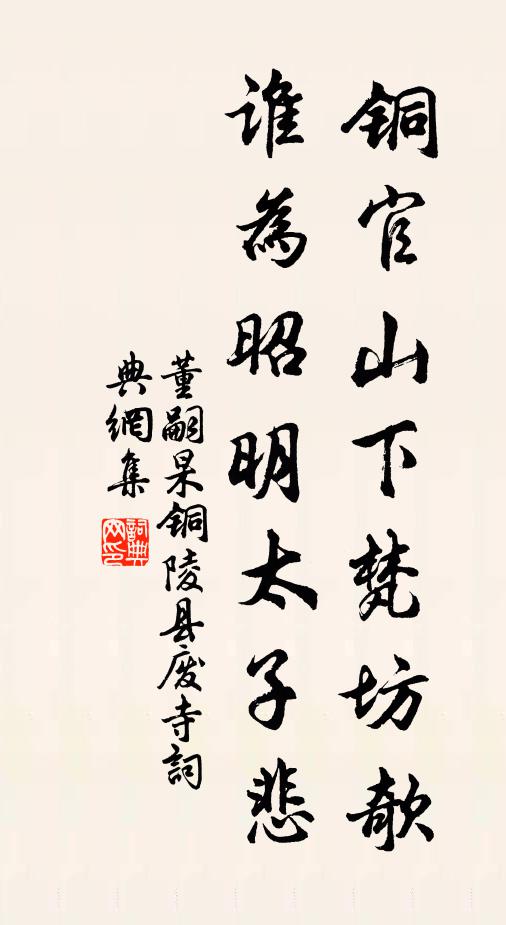 铜官山下梵坊欹
谁為昭明太子悲
董嗣杲铜陵县废寺詞
典網集
詞典
网印